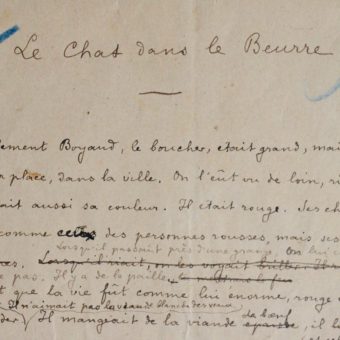 Le Chat dans le Beurre
Boyaud, le boucher, était grand, mai
r place, dans la ville. On l'eût vu de loin, 
ait aussi sa couleur. Il était rouge. Ses ch
comme ceux des personnes rousses, mais ses
lorsqu'il passait près d'une grange. On lui
Lorsqu'il riait, on les voyait briller.
pas. Il y a de la paille
que la vie fût comme lui énorme, rouge
Il n'aimait pas la
Il mangeait de la viande épaisse, il
de bœuf